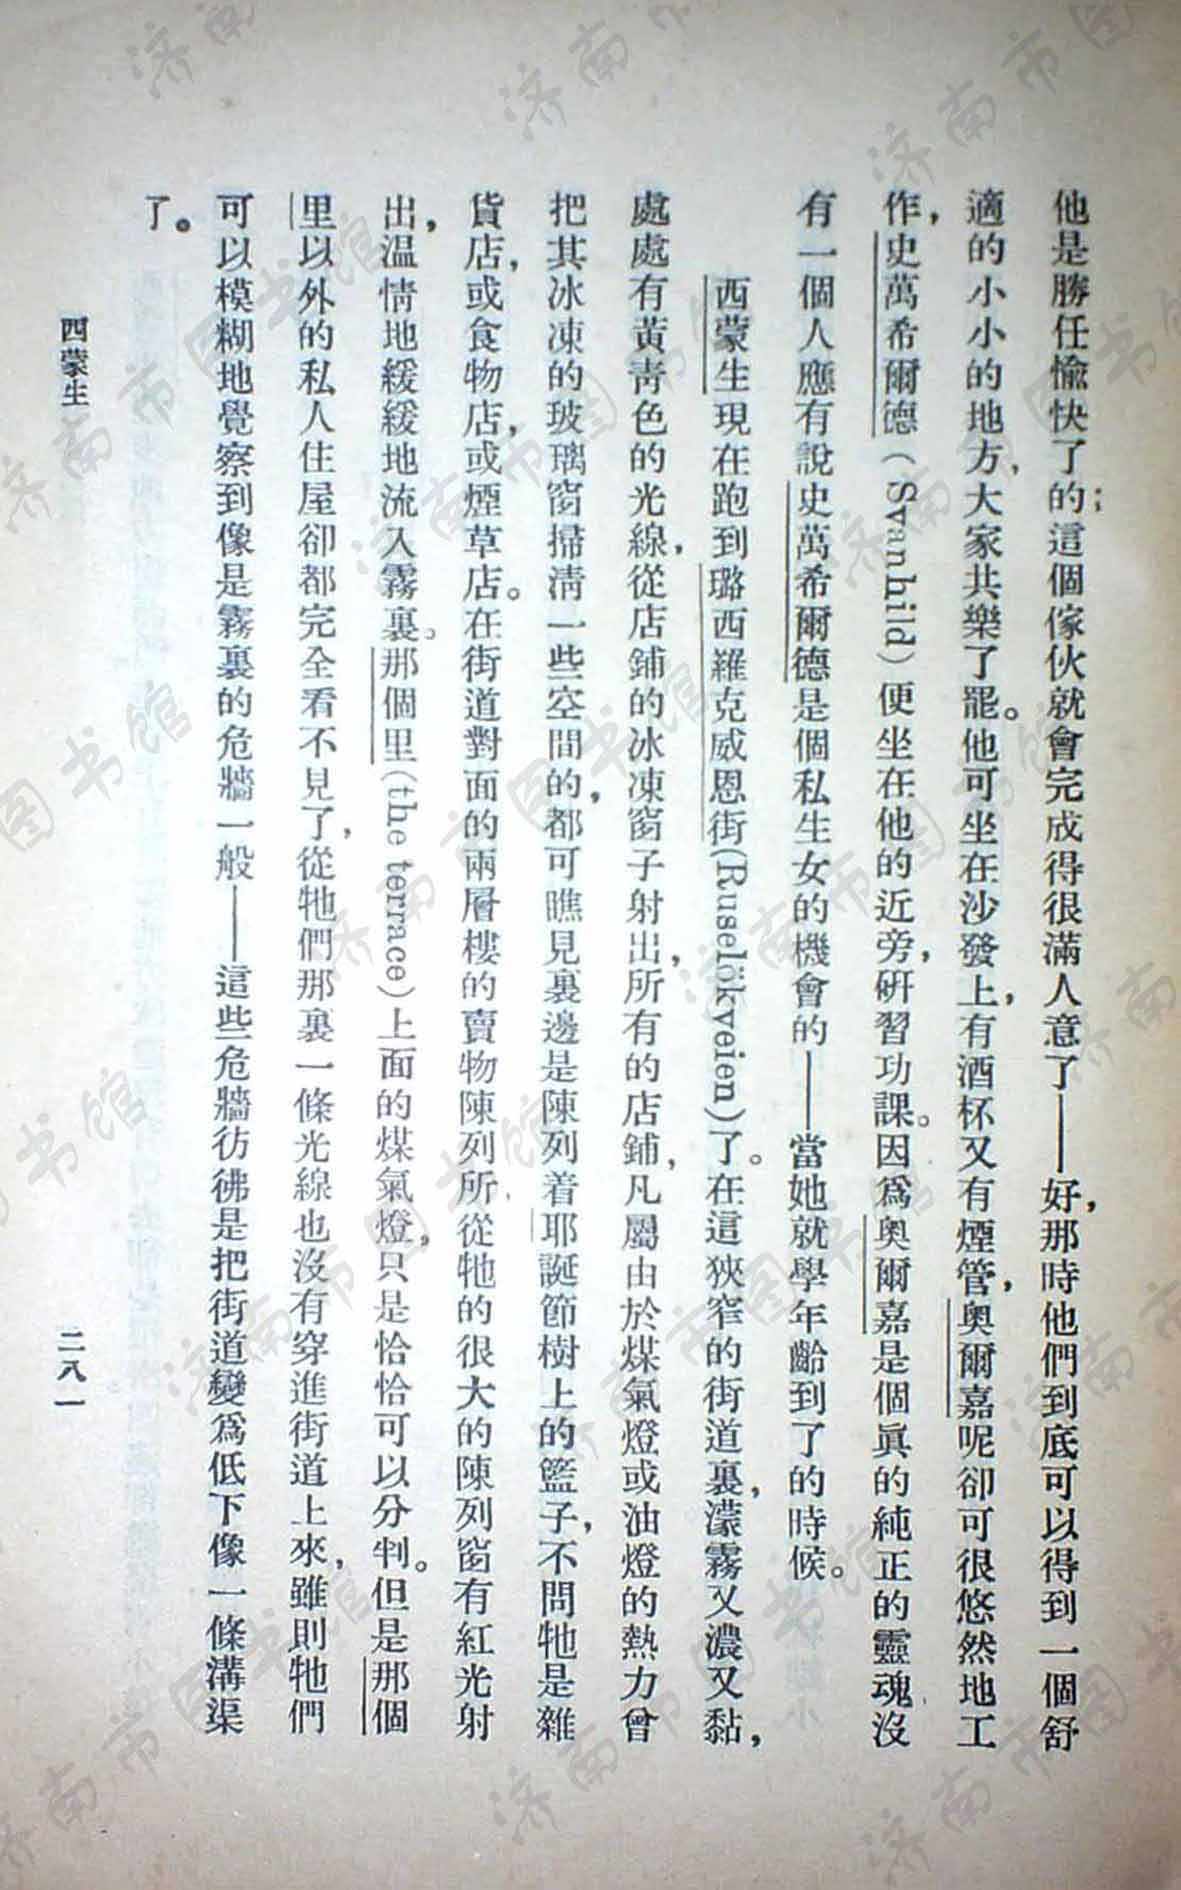 他是勝任愉快了的；這個傢伙就會完成得很滿人意了——好，那時他們到底可以得到一個舒
適的小小的地方，大家共樂了罷。他可坐在沙發上，有酒杯又有煙管，奧爾嘉呢卻可很悠然地工
作，史萬希爾德（Svanhild）便坐在他的近旁，硏習功課。因爲奧爾嘉是個眞的純正的靈魂，沒
有一個人應有說史萬希爾德是個私生女的機會的——當她就學年齡到了的時候。
西蒙生現在跑到璐西羅克威恩街（Ruselökveien）了。在這狹窄的街道裏，濛霧又濃又黏，
處處有黃靑色的光線，從店鋪的冰凍窗子射出，所有的店鋪，凡屬由於煤氣燈或油燈的熱力曾
把其冰凍的玻璃窗掃淸一些空間的，都可瞧見裏邊是陳列着耶誕節樹上的籃子，不問牠是雜
貨店，或食物店，或煙草店。在街道對面的兩層樓的賣物陳列所，從牠的很大的陳列窗有紅光射
出，温情地緩緩地流入霧裏。那個里（the terrace）上面的煤氣燈，只是恰恰可以分判。但是那個
里以外的私人住屋卻都完全看不見了，從牠們那裏一條光線也沒有穿進街道上來，雖則牠們
可以模糊地覺察到像是霧裏的危牆一般——這些危牆彷彿是把街道變爲低下像一條溝渠
了。
四蒙生
二八一
济南市图书馆